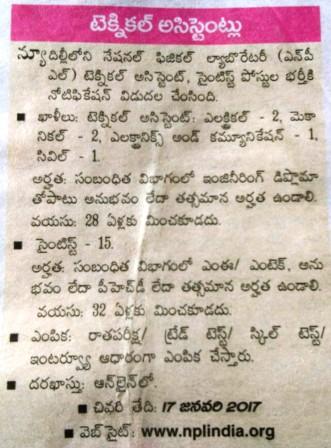 టెక్నికల్ అసిస్టెంట్లు
న్యూఢిల్లీలోని నేషనల్ ఫిజికల్ ల్యాబొరేటరీ (ఎన్‌పీ
ఎల్) టెక్నికల్ అసిస్టెంట్, సైంటిస్ట్ పోస్టుల భర్తీకి
నోటిఫికేషన్ విడుదల చేసింది.
■ ఖాళీలు: టెక్నికల్ అసిస్టెంట్: ఎలక్ట్రికల్ - 2, మెకా
నికల్ - 2, ఎలక్ట్రానిక్స్ అండ్ కమ్యూనికేషన్ - 1,
సివిల్ - 1.
అర్హత: సంబంధిత విభాగంలో ఇంజినీరింగ్ డిప్లొమా
తోపాటు అనుభవం లేదా తత్సమాన అర్హత ఉండాలి.
వయసు: 28 ఏళ్లకు మించకూడదు.
■ సైంటిస్ట్ - 15.
అర్హత: సంబంధిత విభాగంలో ఎంఈ/ ఎంటెక్, అను
భవం లేదా పీహెచ్‌డీ లేదా తత్సమాన అర్హత ఉండాలి.
వయసు: 32 ఏళ్లకు మించకూడదు.
■ ఎంపిక: రాతపరీక్ష/ ట్రేడ్ టెస్ట్/ స్కిల్ టెస్ట్/
ఇంటర్వ్యూ ఆధారంగా ఎంపిక చేస్తారు.
■ దరఖాస్తు: ఆన్‌లైన్‌లో.
■ చివరి తేది: 17 జనవరి 2017
■ వెబ్‌సైట్: www.nplindia.org